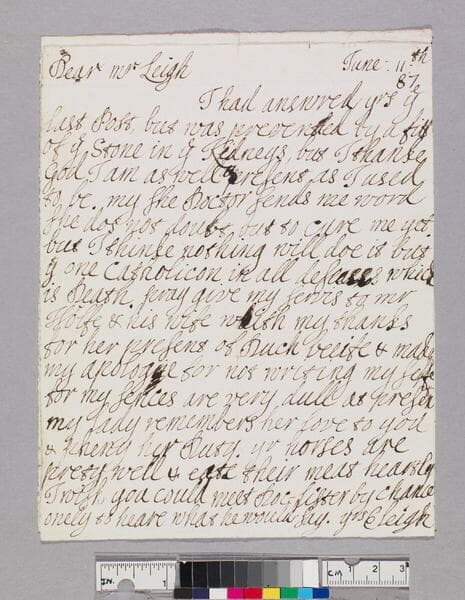 Dear mr Leigh June: 11th
87
I had answred yrs ye
last Post, but was prevented by a fitt
of ye Stone in ye Kidneys, but I thanke
God I am as well at present, as I used
to be. my she Doctor sends me word
she dos not doubt, but to cure me yet
but I thinke nothing will doe it but
ye one Catholicon in all deseases which
is Death. pray give my servis to mr
& his wife with my thanks
for her present of & make
my apologie for not writing my selfe
for my sences are very dull at present
my Lady remembers her love to you
& her Duty. yr horses are
prety well & eate their meat heartly
I wish you could meet Doc: by chance
onely to heare what he would say. yrs Cleigh
IN. 1
CM 1 2 3